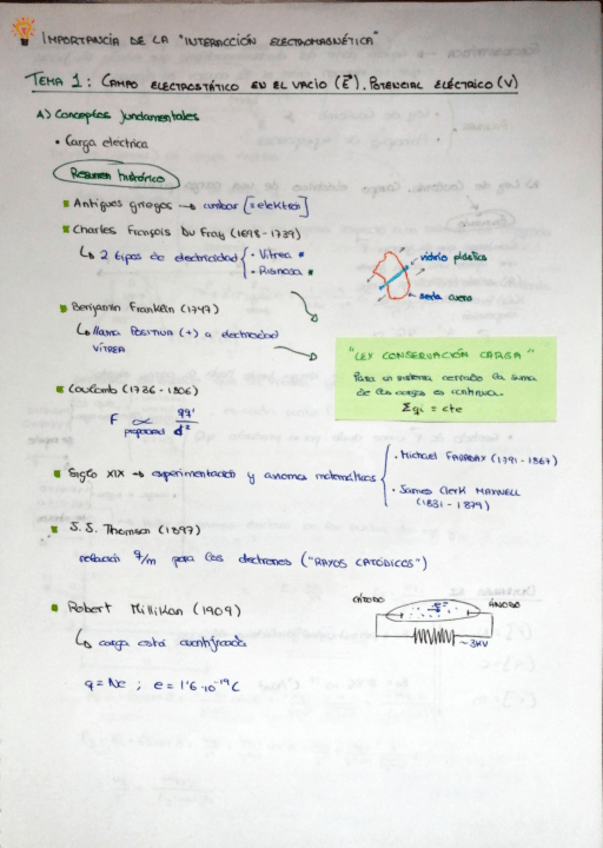 IMPORTANCIA DE LA "INTERACCIÓN ELECTROMAGNÉTICA"
TEMA 1: CAMPO ELECTROSTÁTICO EN EL VACÍO (E⃗). POTENCIAL ELÉCTRICO (V)
A) Conceptos fundamentales
• Carga eléctrica
Resumen histórico
Antiguos griegos → ambar [=elektron]
Charles François Du Fray (1698-1739)
↳ 2 tipos de electricidad { • Vítrea
• Risinosa
vidrio plástico
seda cuero
Benjamin Franklin (1747)
↳ llama POSITIVA (+) a electricidad
VÍTREA
"LEY CONSERVACIÓN CARGA"
Para un sistema cerrado la suma
de las cargas es continua.
Σqi = cte
Coulomb (1736-1806)
F ∝ qq'/d²
proporcional
Siglo XIX → experimentación y axiomas matemáticos { • Michael FARADAY (1791-1867)
• James Clerk MAXWELL
(1831-1879)
J.J. Thomson (1897)
relación q/m para los electrones ("RAYOS CATÓDICOS")
Robert Millikan (1909)
CÁTODO
ÁNODO
~3KV
↳ carga está cuantificada
q = Ne ; e = 1'6·10⁻¹⁹ C